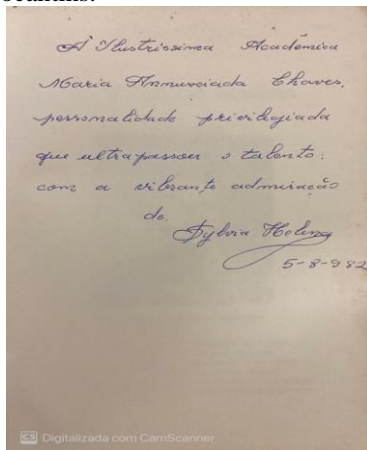 À Ilustrissima Acadêmica
Maria Annunciada Chaves,
personalidade privilegiada
que ultrapassou o talento;
com a vibrante admiração
de.
Sylvia Helena
5-8-982
CS Digitalizada com CamScanner